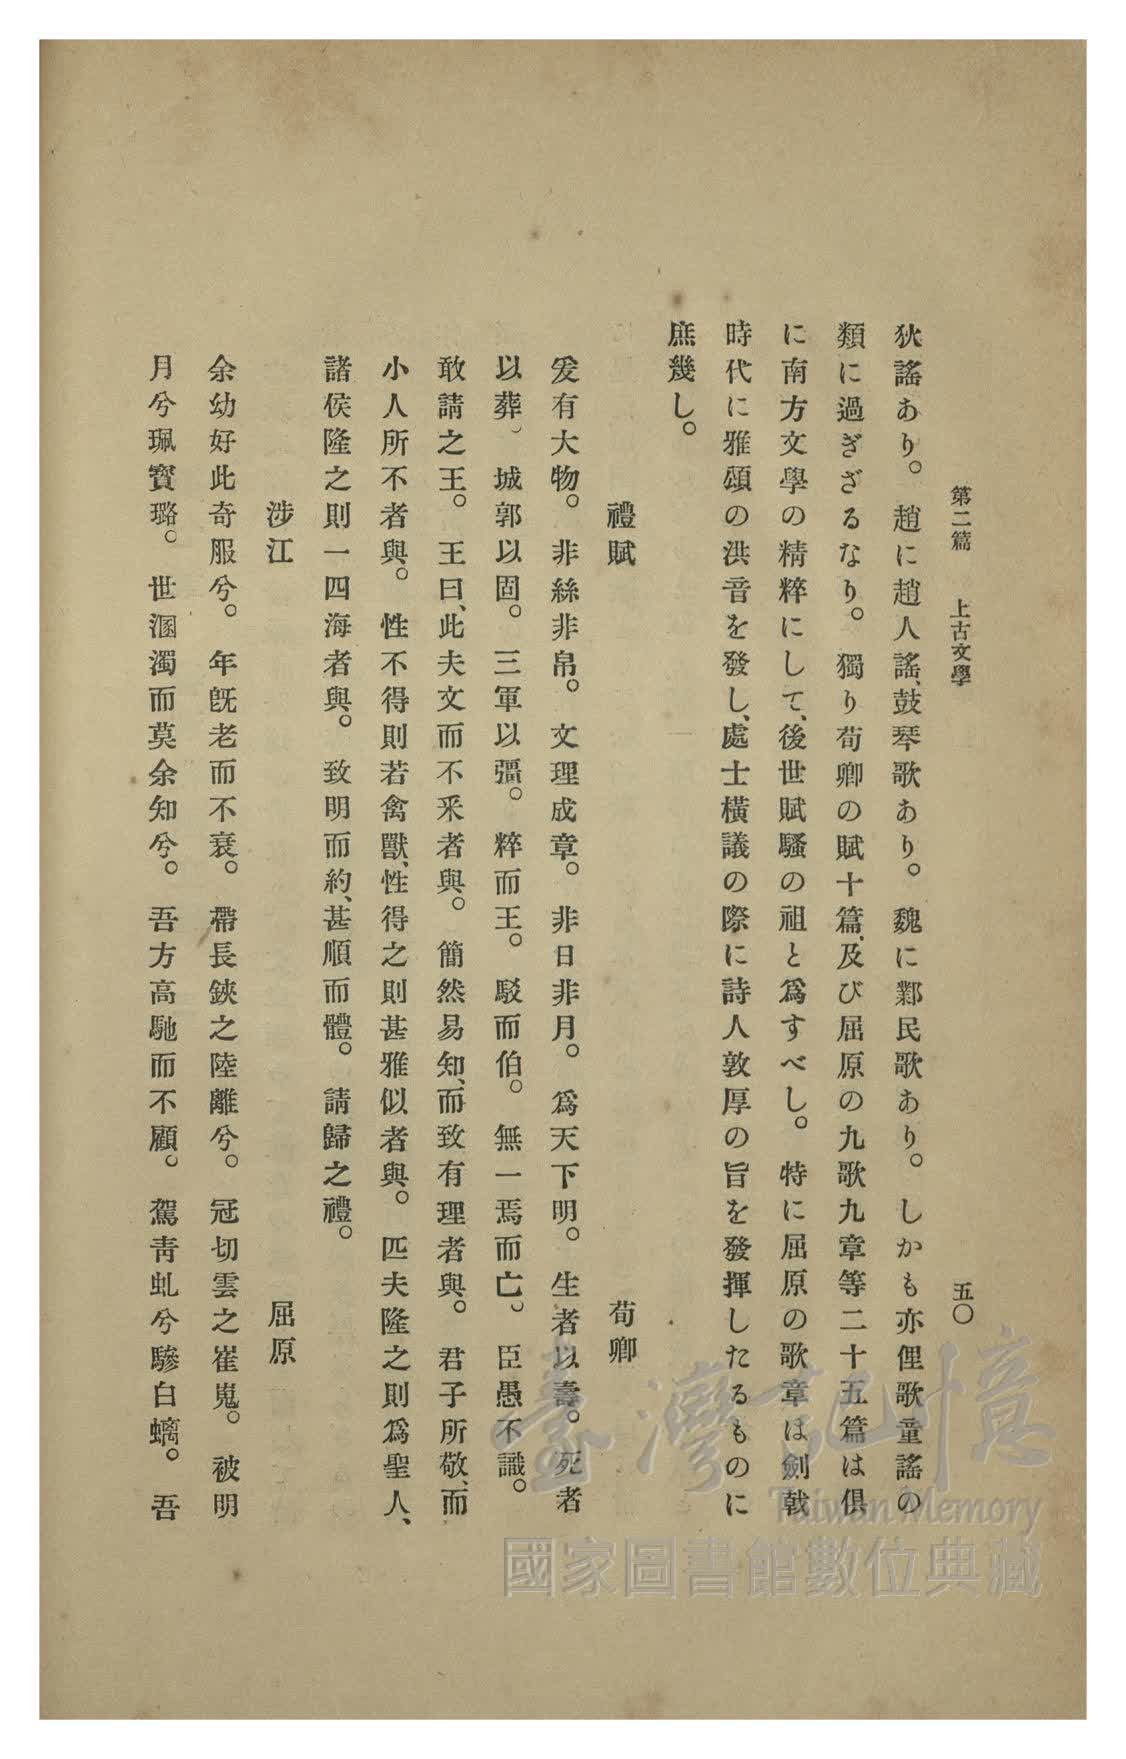 第二篇　上古文學　五〇
狄謠あり。趙に趙人謠、鼓琴歌あり。魏に鄴民歌あり。しかも亦俚歌童謠の
類に過ぎざるなり。獨り荀卿の賦十篇、及び屈原の九歌九章等二十五篇は俱
に南方文學の精粹にして、後世賦騷の祖と爲すべし。特に屈原の歌章は劍戟
時代に雅頌の洪音を發し、處士橫議の際に詩人敦厚の旨を發揮したるものに
庶幾し。
禮賦　荀卿
爰有大物。非絲非帛。文理成章。非日非月。爲天下明。生者以壽。死者
以葬、城郭以固。三軍以彊。粹而王。駁而伯。無一焉而亡。臣愚不識。
敢請之王。王曰、此夫文而不釆者與。簡然易知、而致有理者與。君子所敬、而
小人所不者與。性不得則若禽獸、性得之則甚雅似者與。匹夫隆之則爲聖人、
諸侯隆之則一四海者與。致明而約、甚順而體。請歸之禮。
涉江　屈原
余幼好此奇服兮。年旣老而不衰。帶長鋏之陸離兮。冠切雲之崔嵬。被明
月兮珮寶璐。世溷濁而莫余知兮。吾方高馳而不顧。駕靑虬兮驂白螭。吾
臺灣記憶
Taiwan Memory
國家圖書館數位典藏